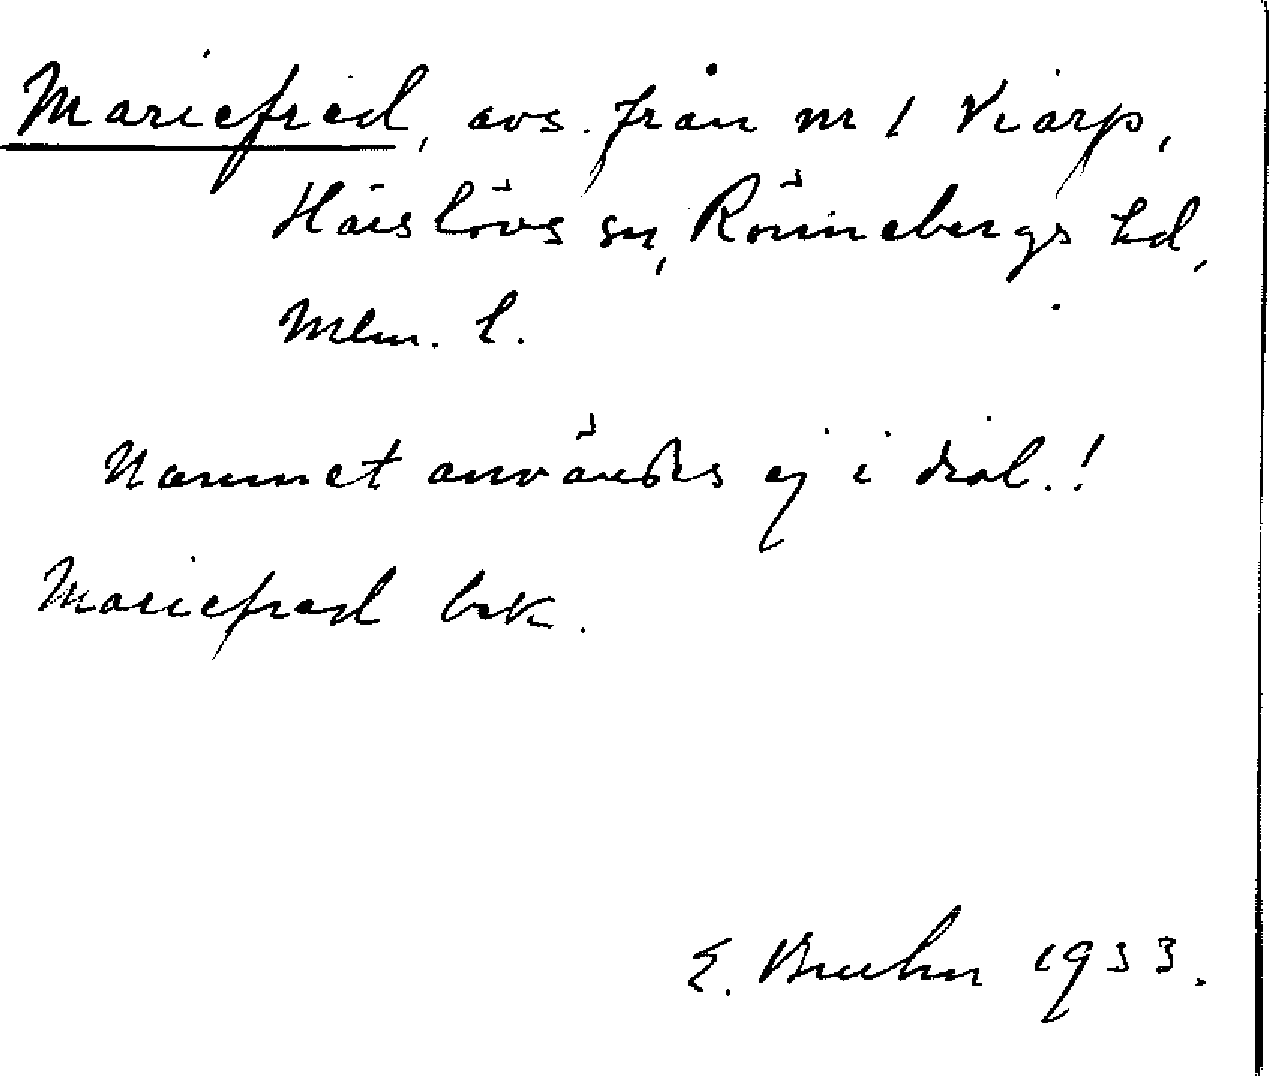 Mariefred, avs. från nr 1 Viarp,
Häislövs sn, Rönnebergs hd,
Mlm. l.
Namnet användes ej i dial.!
Mariefred bek.
E. Bruhn 1933.